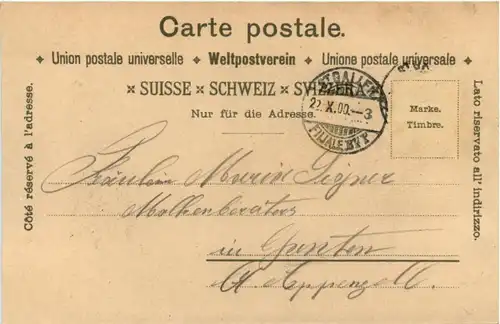 Carte postale.
Union postale universelle ✦ Weltpostverein ✦ Unione postale universale
SUISSE × SCHWEIZ × SVIZZERA
Nur für die Adresse.
Côté réservé à l'adresse.
Lato riservato all' indirizzo.
Marke.
Timbre.
ST. GALLEN
22.X.00.-3
FILIALE
Fräulein Maria
in Gonten
Appenzell